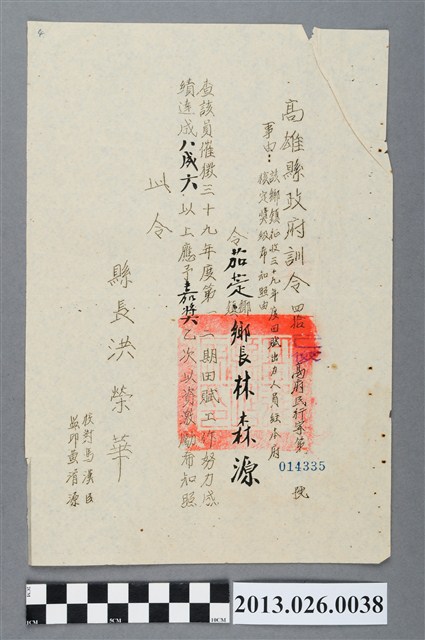 高雄縣政府訓令
高府民行字第 號
014335
事由：該鄉鎮征收三十九年度田賦出力人員經本府
核定獎級希知照由
令茄萣鄉長林森源
查該員催徵三十九年度第一二期田賦工作努力成
績達成八成六以上應予嘉獎乙次以資鼓勵希知照
此令
縣長洪榮華
校對馬漢臣
監印
2013.026.0038